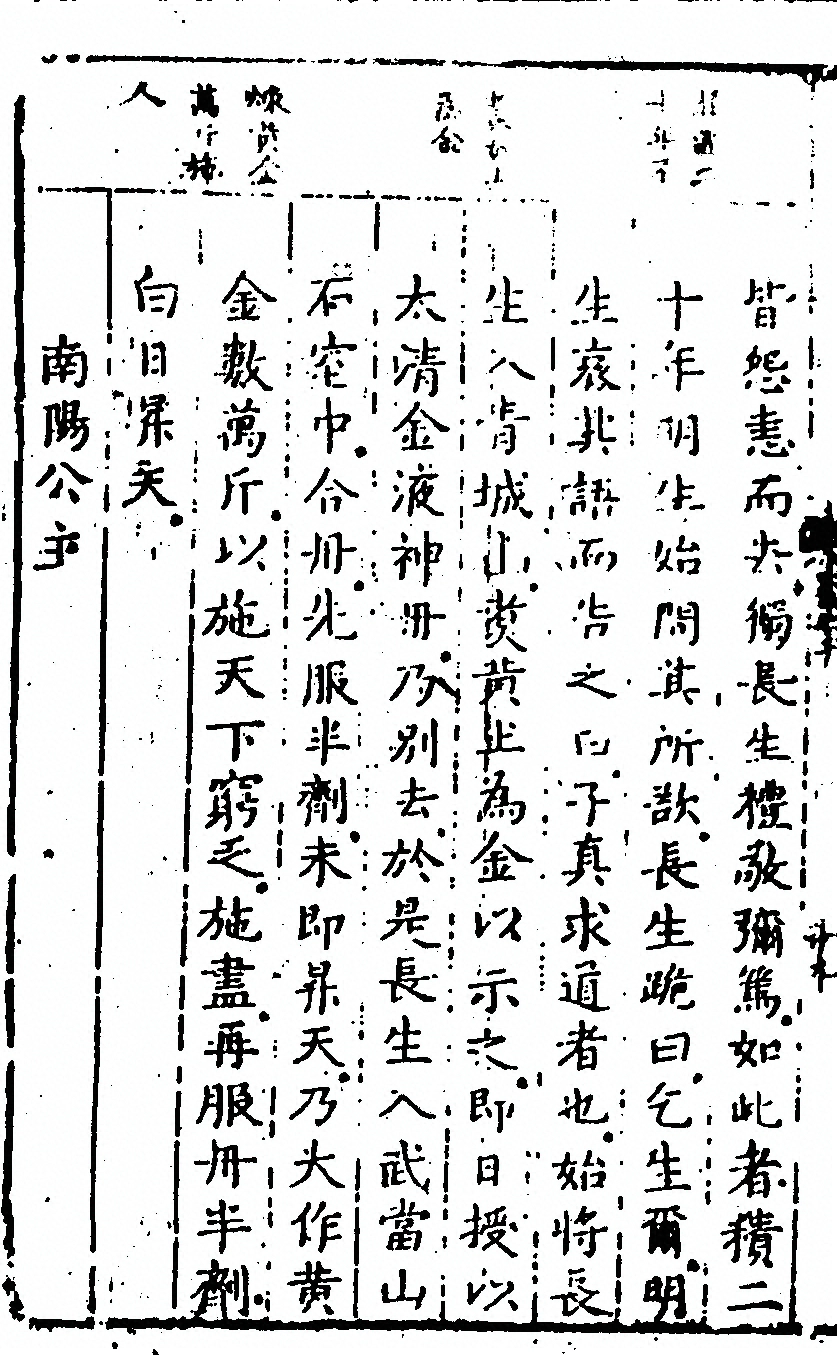 皆怨恚而去獨長生禮敬彌篤如此者積二
十年明生始問其所欲長生跪曰乞生爾明
生哀其語而告之曰子真求道者也始將長
生入青城山煑黄土為金以示之即日授以
太清金液神丹乃别去於是長生入武當山
石室中合丹先服半劑未即昇天乃大作黄
金數萬斤以施天下窮乏施盡再服丹半劑
白日昇天
南陽公主
煉黄金
萬斤施
人